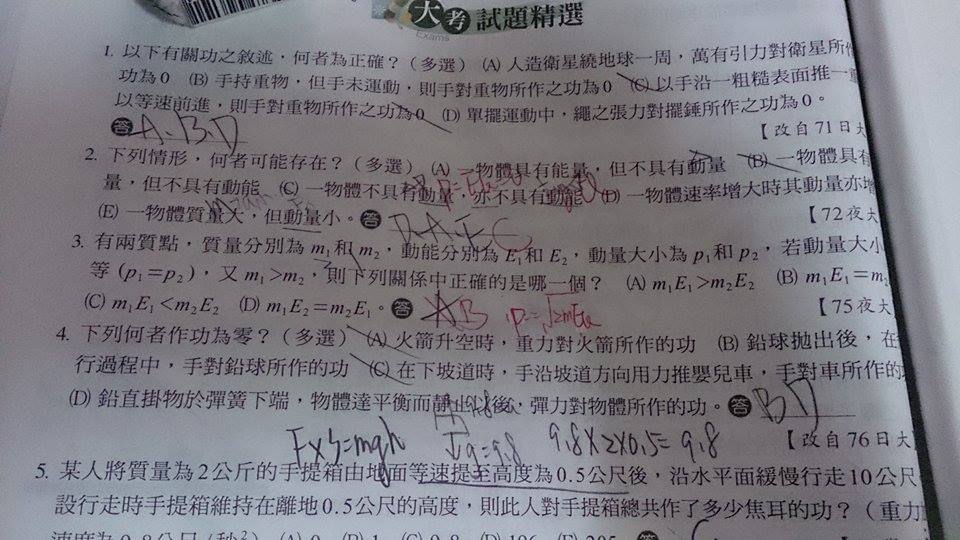 大考試題精選
Exams
1. 以下有關功之敘述，何者為正確？（多選） (A) 人造衛星繞地球一周，萬有引力對衛星所
功為0 (B) 手持重物，但手未運動，則手對重物所作之功為0 (C) 以手沿一粗糙表面推一
以等速前進，則手對重物所作之功為0 (D) 單擺運動中，繩之張力對擺錘所作之功為0。
答 A、B、D
【改自71日
2. 下列情形，何者可能存在？（多選） (A) 一物體具有能量，但不具有動量 (B) 一物體具
量，但不具有動能 (C) 一物體不具有動量，亦不具有動能 (D) 一物體速率增大時其動量亦
(E) 一物體質量大，但動量小。答 D A E C
【72夜
3. 有兩質點，質量分別為 m₁和 m₂，動能分別為 E₁和 E₂，動量大小為 p₁和 p₂，若動量大小
等 (p₁=p₂)，又 m₁>m₂，則下列關係中正確的是哪一個？ (A) m₁E₁>m₂E₂ (B) m₁E₁=m
(C) m₁E₁<m₂E₂ (D) m₁E₁=m₂E₂。答 A B
【75夜
4. 下列何者作功為零？（多選） (A) 火箭升空時，重力對火箭所作的功 (B) 鉛球拋出後，在
行過程中，手對鉛球所作的功 (C) 在下坡道時，手沿坡道方向用力推嬰兒車，手對車所作的
(D) 鉛直掛物於彈簧下端，物體達平衡而靜止以後，彈力對物體所作的功。答 BD
F×S=mgh g=9.8 9.8×2×0.5=9.8
【改自76日
5. 某人將質量為2公斤的手提箱由地面等速提至高度為0.5公尺後，沿水平面緩慢行走10公尺
設行走時手提箱維持在離地0.5公尺的高度，則此人對手提箱總共作了多少焦耳的功？（重力
速度為9.8公尺/秒²） (A) 0 (B) 1 (C) 9.8 (D) 196 (E) 205 答